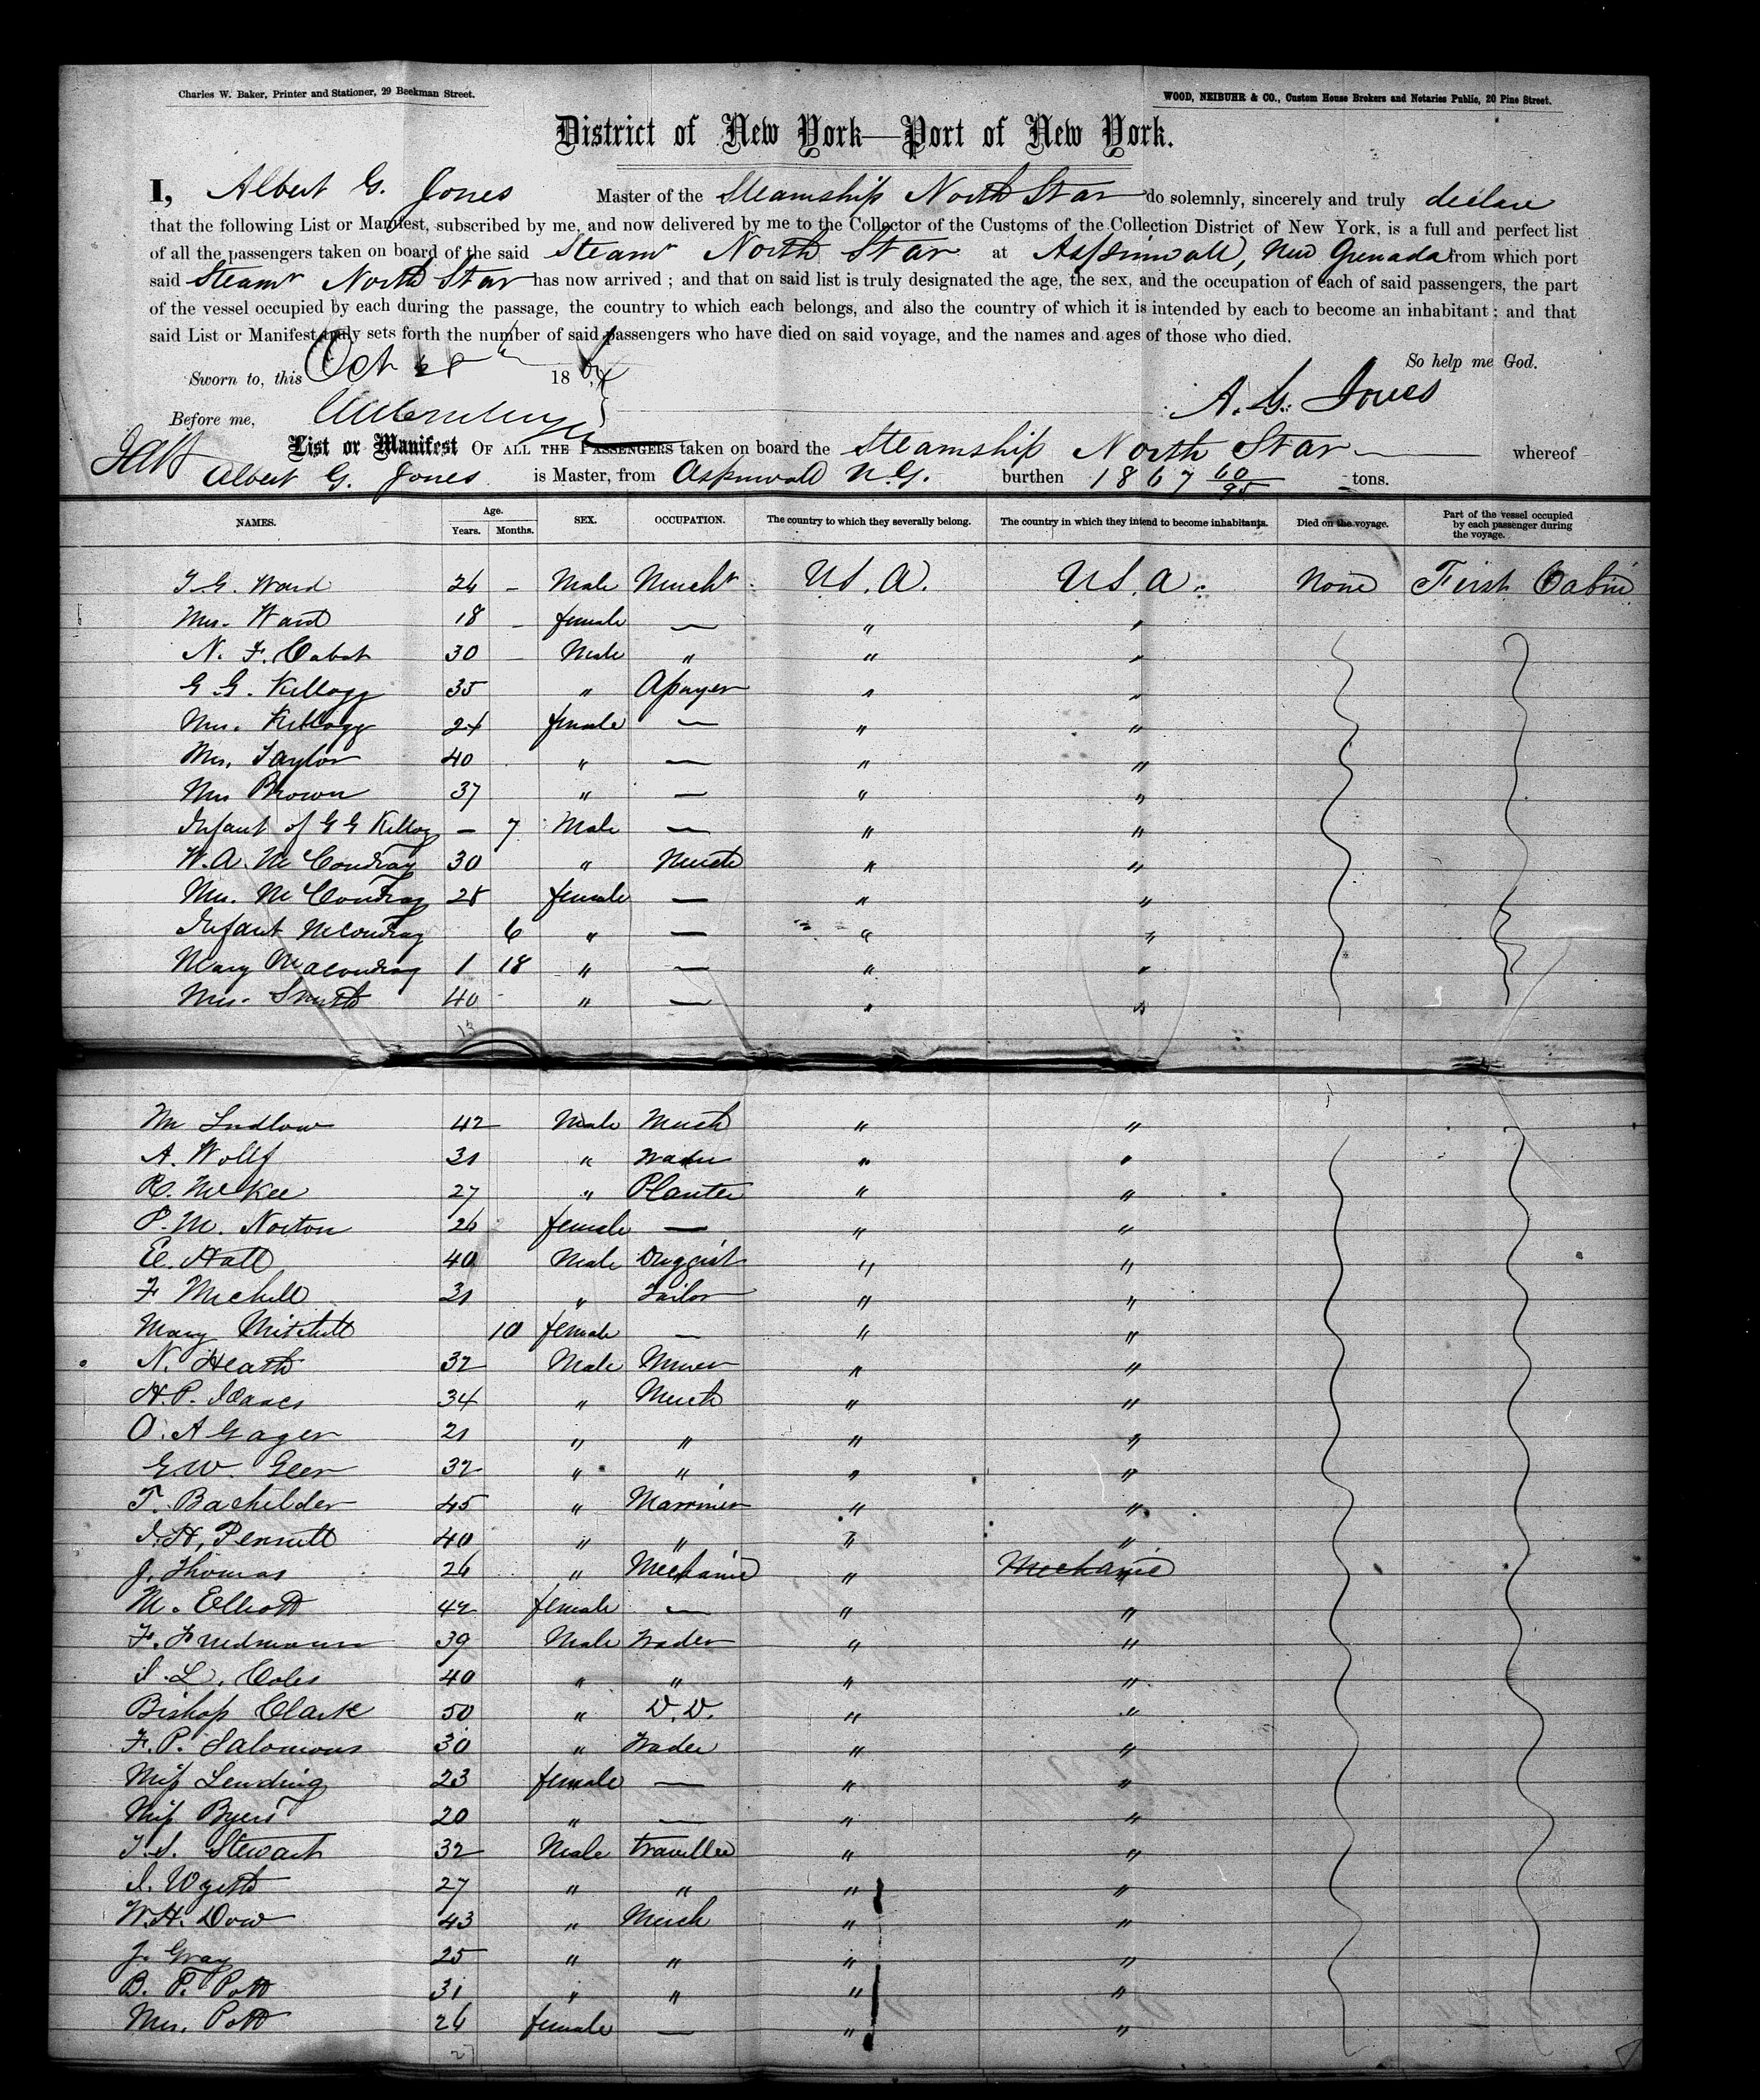 Charles W. Baker, Printer and Stationer, 29 Beekman Street.
WOOD, NEIBUHR & CO., Custom House Brokers and Notaries Public, 20 Pine Street.
District of New York—Port of New York.
I, Albert G. Jones Master of the Steamship North Star do solemnly, sincerely and truly declare
that the following List or Manifest, subscribed by me, and now delivered by me to the Collector of the Customs of the Collection District of New York, is a full and perfect list
of all the passengers taken on board of the said Steamr North Star at Aspinwall, New Grenada from which port
said Steamr North Star has now arrived ; and that on said list is truly designated the age, the sex, and the occupation of each of said passengers, the part
of the vessel occupied by each during the passage, the country to which each belongs, and also the country of which it is intended by each to become an inhabitant ; and that
said List or Manifest truly sets forth the number of said passengers who have died on said voyage, and the names and ages of those who died.
So help me God.
Sworn to, this Oct 18
A. G. Jones
Before me,
List or Manifest OF ALL THE PASSENGERS taken on board the Steamship North Star whereof
Albert G. Jones is Master, from Aspinwall N.G. burthen 1867 60/95 tons.
NAMES. Age. Years. Months. SEX. OCCUPATION. The country to which they severally belong. The country in which they intend to become inhabitants. Died on the voyage. Part of the vessel occupied by each passenger during the voyage.
Ward 26 — Male Mercht U.S.A. U.S.A. None First Cabin
Mrs. Ward 18 — female — " "
N. F. Cabot 30 — Male " " "
G G. Kellogg 35 " " "
Mrs. Kellogg 24 female — " "
Mrs. Taylor 40 " — " "
Mrs Brown 37 " — " "
Infant of G G Kellogg — 7 Male — " "
W. A. McCondray 30 " Merch " "
Mrs. McCondray 28 female — " "
Infant McCondray 6 " — " "
Mary Macondray 1 18 " — " "
Mrs. Smith 40 " — " "
13
Mr Ludlow 42 Male Merch " "
A. Wolff 31 " Trader " "
R. McKee 27 " Planter " "
P. M. Norton 26 female — " "
E. Hall 40 Male Druggist " "
F Michell 31 " Tailor " "
Mary Mitchell 10 female — " "
N. Heath 32 Male Miner " "
H. P. Isaacs 34 " Merch " "
O. A Gager 21 " " " "
G. W. Geer 32 " " " "
T. Bachelder 45 " Marriner " "
J. H. Pennell 40 " " " "
J. Thomas 26 " Mechanic " Mechanic "
M. Elliott 42 female — " "
F. Friedmann 39 Male Trader " "
S. L. Coles 40 " " " "
Bishop Clark 50 " D.D. " "
F. P. Salomons 30 " Trader " "
Miss Lending 23 female — " "
Miss Byers 20 " — " "
T. S. Stewart 32 Male traveller " "
J. Wyeth 27 " " " "
W. H. Dow 43 " Merch " "
J. Gray 25 " " " "
B. P. Pott 31 " " " "
Mrs. Pott 26 female — " "
27